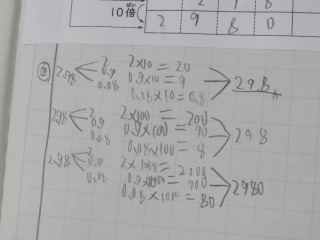 2 9 8
10倍
2 9 8 0
2.98
2 2×10=20
0.9 0.9×10=9
0.08 0.08×10=0.8
29.8
2.98
2 2×100=200
0.9 0.9×100=90
0.08 0.08×100=8
298
2.98
2 2×1000=2000
0.9 0.9×1000=900
0.08 0.08×1000=80
2980